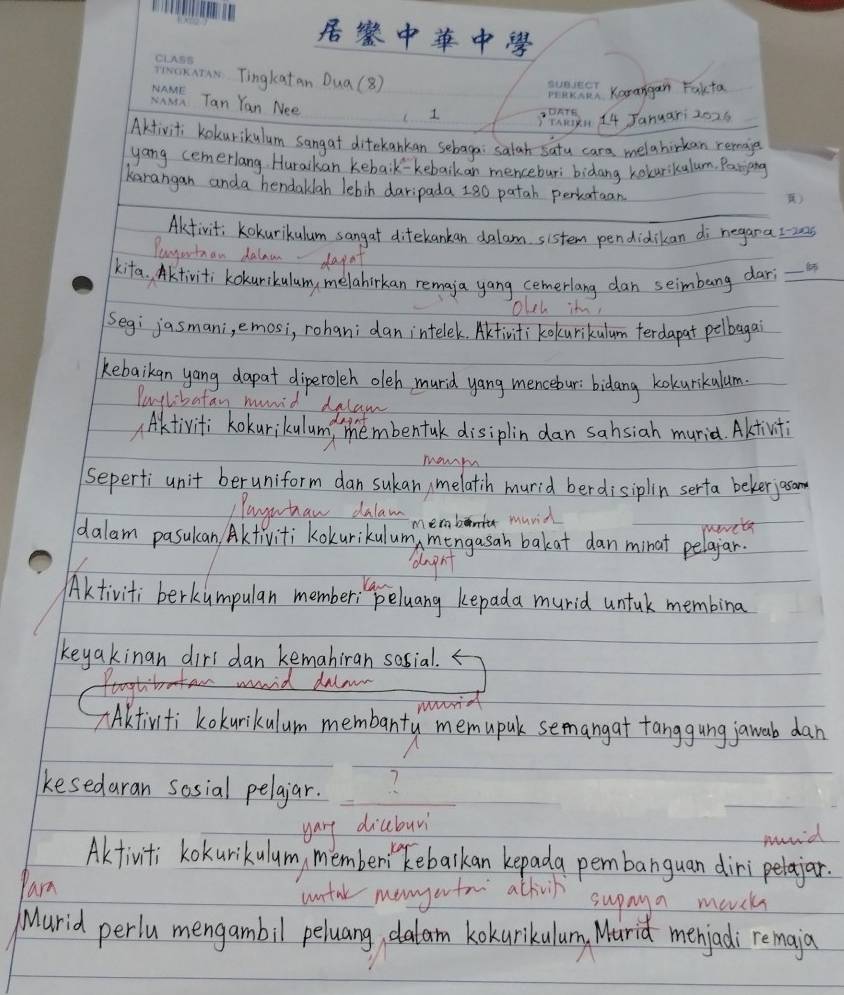 居銮中華中學
CLASS
TINGKATAN Tingkatan Dua (8)
SUBJECT
PERKARA Karangan Fakta
NAME
NAMA Tan Yan Nee
( 1
DATE
TARIKH 14 Januari 2026
Aktiviti kokurikulum sangat ditekankan sebagai salah satu cara melahirkan remaja
yang cemerlang. Huraikan kebaik-kebaikan menceburi bidang kokurikulum. Panjang
karangan anda hendaklah lebih daripada 180 patah perkataan.
頁)
Aktiviti kokurikulum sangat ditekankan dalam sistem pendidikan di negara
Penyertaan dalam dapat
kita. Aktiviti kokurikulum melahirkan remaja yang cemerlang dan seimbang dari
Oleh itu,
segi jasmani, emosi, rohani dan intelek. Aktiviti kokurikulum terdapat pelbagai
kebaikan yang dapat diperoleh oleh murid yang menceburi bidang kokurikulum.
Penglibatan murid dalam
dapat
Aktiviti kokurikulum membentuk disiplin dan sahsiah murid. Aktiviti
mampu
seperti unit beruniform dan sukan melatih murid berdisiplin serta bekerjasama
Penyertaan dalam membantu murid mereka
dalam pasukan. Aktiviti kokurikulum mengasah bakat dan minat pelajar.
dapat
kan
Aktiviti berkumpulan memberi peluang kepada murid untuk membina
keyakinan diri dan kemahiran sosial.
Penglibatan murid dalam
murid
Aktiviti kokurikulum membantu memupuk semangat tanggungjawab dan
kesedaran sosial pelajar. ?
yang diceburi
kan murid
Aktiviti kokurikulum memberi kebaikan kepada pembangunan diri pelajar.
Para untuk menyertai aktiviti supaya mereka
Murid perlu mengambil peluang dalam kokurikulum. Murid menjadi remaja